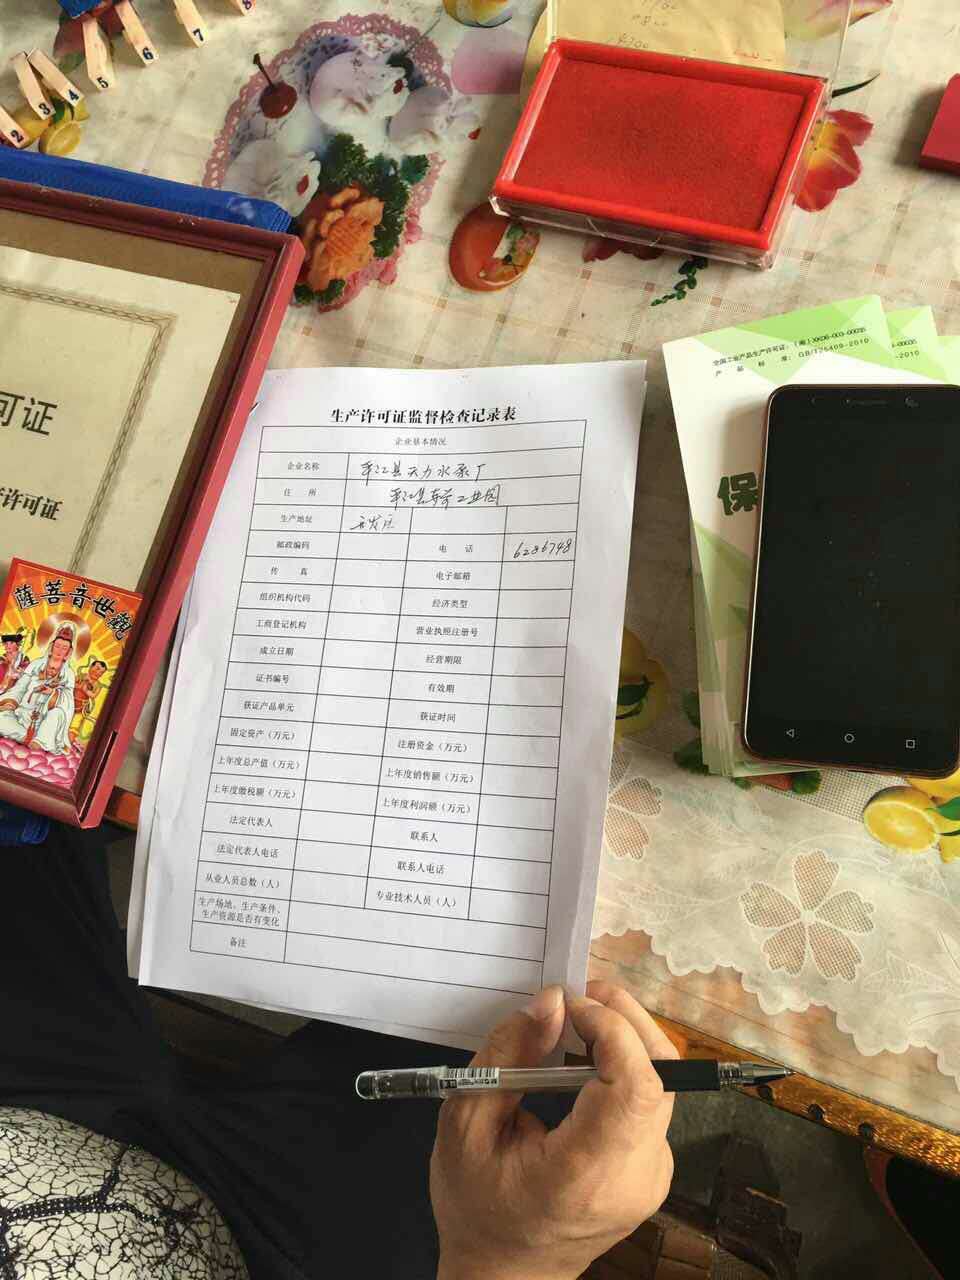 2
3
4
5
6
7
8
可证
产许可证
觀世音菩薩
全国工业产品生产许可证：（湘）XK06-003-00035
产 品 标 准：GB/T26409-2010
保
生产许可证监督检查记录表
企业基本情况
企业名称 平江县天力水泵厂
住 所 平江县寺前工业园
生产地址 开发区
邮政编码 电 话 6286748
传 真 电子邮箱
组织机构代码 经济类型
工商登记机构 营业执照注册号
成立日期 经营期限
证书编号 有效期
获证产品单元 获证时间
固定资产（万元） 注册资金（万元）
上年度总产值（万元） 上年度销售额（万元）
上年度缴税额（万元） 上年度利润额（万元）
法定代表人 联系人
法定代表人电话 联系人电话
从业人员总数（人） 专业技术人员（人）
生产场地、生产条件、
生产资源是否有变化
备注